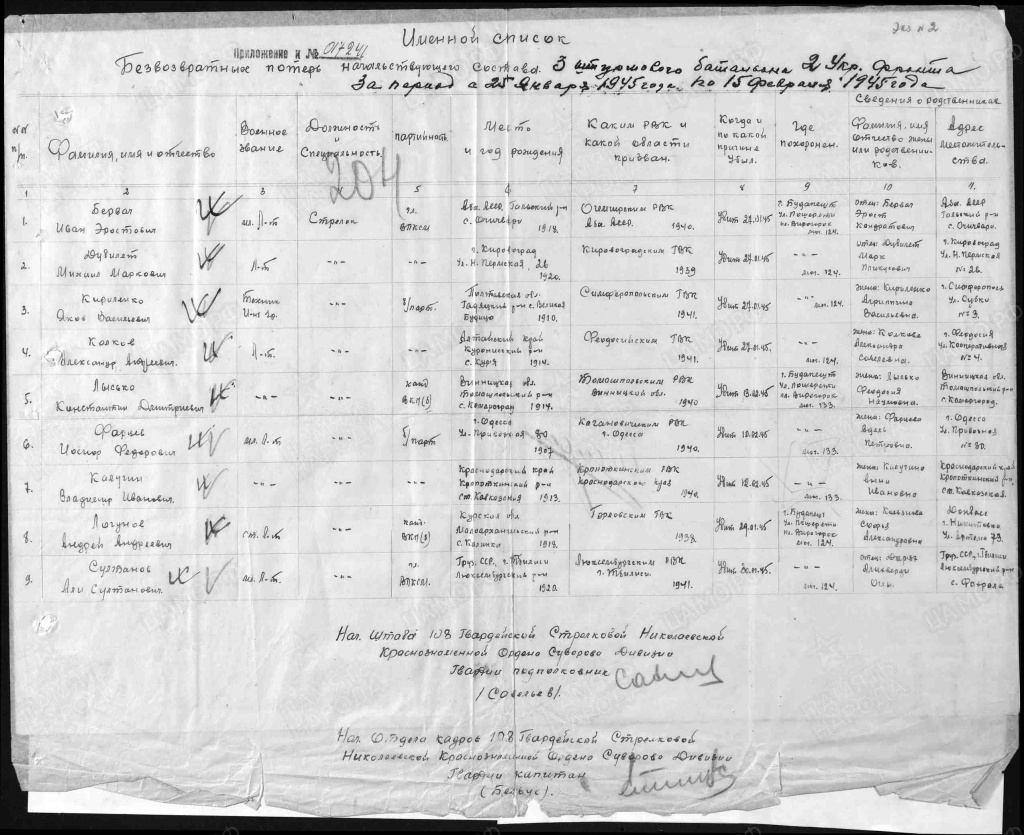 Экз №2
Именной список
Приложение к № 01724
Безвозвратных потерь начальствующего состава. 3 штурмового батальона 2 Укр. фронта
За период с 25 Января 1945 года по 15 февраля 1945 года
№№ п/п.
Фамилия, имя и отчество
Военное звание
Должность и Специальность
партийность
Место и год рождения
Каким РВК и какой области призван.
Когда и по какой причине убыл.
Где похоронен.
Сведения о родственниках
Фамилия, имя отчество жены или родственников.
Адрес местожительства.
204
1 2 3 4 5 6 7 8 9 10 11
1. Берваль Иван Эростович мл. Л-т Стрелок чл. ВЛКСМ с. 1918. Очемчирским РВК Абх. АССР. 1940. Убит 27.01.45 г. Будапешт мог. 124. отец: Берваль Эрост Кондратович Абх. АССР
2. Дувилет Михаил Маркович Л-т -"- -"- г. Кировоград Ул. Н. Пермская, 26 1920. Кировоградским ГВК 1939 Убит 27.01.45 -"- мог. 124. отец Дувилет Марк г. Кировоград Ул. Н. Пермская № 26.
3. Кириленко Яков Васильевич Техник -"- б/парт. Полтавская обл. Гадяцкий р-н с. Великая Будища 1910. Симферопольским ГВК 1941. Убит 27.01.45 -"- мог. 124. жена: Кириленко Васильевна. г. Симферополь № 3.
4. Калков Александр Андреевич Л-т -"- -"- Алтайский край с. Курья 1914. Феодосийским ГВК 1941. Убит 27.01.45 -"- мог. 124. жена: Калкова Александра Савельевна. г. Феодосия Ул. Кооперативная № 4.
5. Лысько Константин Дмитриевич -"- -"- канд ВКП(б) Винницкая обл. Томашпольский р-н с. Комаргород 1914. Томашпольским РВК Винницкой обл. 1940 Убит 13.02.45 г. Будапешт мог. 133. жена: Лысько Феодосия Наумовна. Винницкая обл. Томашпольский р-н с. Комаргород.
6. Фарцев Иосиф Федорович мл. Л-т -"- б/парт г. Одесса Ул. Привозная 80 1907 Кагановичским РВК г. Одесса 1940. Убит 10.02.45 -"- мог. 133. жена: Петровна. г. Одесса Ул. Привозная № 80.
7. Калугин Владимир Иванович. -"- -"- Краснодарский край Кропоткинский р-н ст. Кавказская 1913. Кропоткинским РВК Краснодарского края 1940. Убит 12.02.45 -"- мог. 133. жена: Калугина Ивановна Краснодарский край Кропоткинский р-н ст. Кавказская.
8. Логунов Андрей Андреевич ст. Л-т -"- канд. ВКП(б) Курская обл Малоархангельский р-н 1913. Горловским ГВК 1938. Убит 29.01.45 г. Будапешт мог. 124. жена: Софья Александровна Донбасс г. Никитовка Ул. Артема 73.
9. Султанов Али Султанович. мл. Л-т -"- чл. ВЛКСМ. Груз. ССР, г. Тбилиси Люксембургский р-н 1920. Люксембургским РВК г. Тбилиси. 1941. Убит 30.01.45 -"- мог. 124. отец: Груз. ССР, г. Тбилиси Люксембургский р-н
Нач. штаба 108 Гвардейской Стрелковой Николаевской
Краснознаменной Ордена Суворова Дивизии
Гвардии подполковник
/Савельев/.
Нач. Отдела кадров 108 Гвардейской Стрелковой
Николаевской Краснознаменной Ордена Суворова Дивизии
Гвардии капитан
(Бельус).